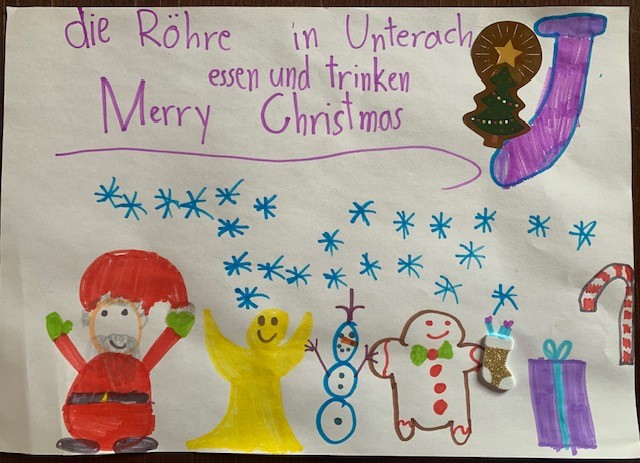 die Röhre in Unterach
essen und trinken
Merry Christmas